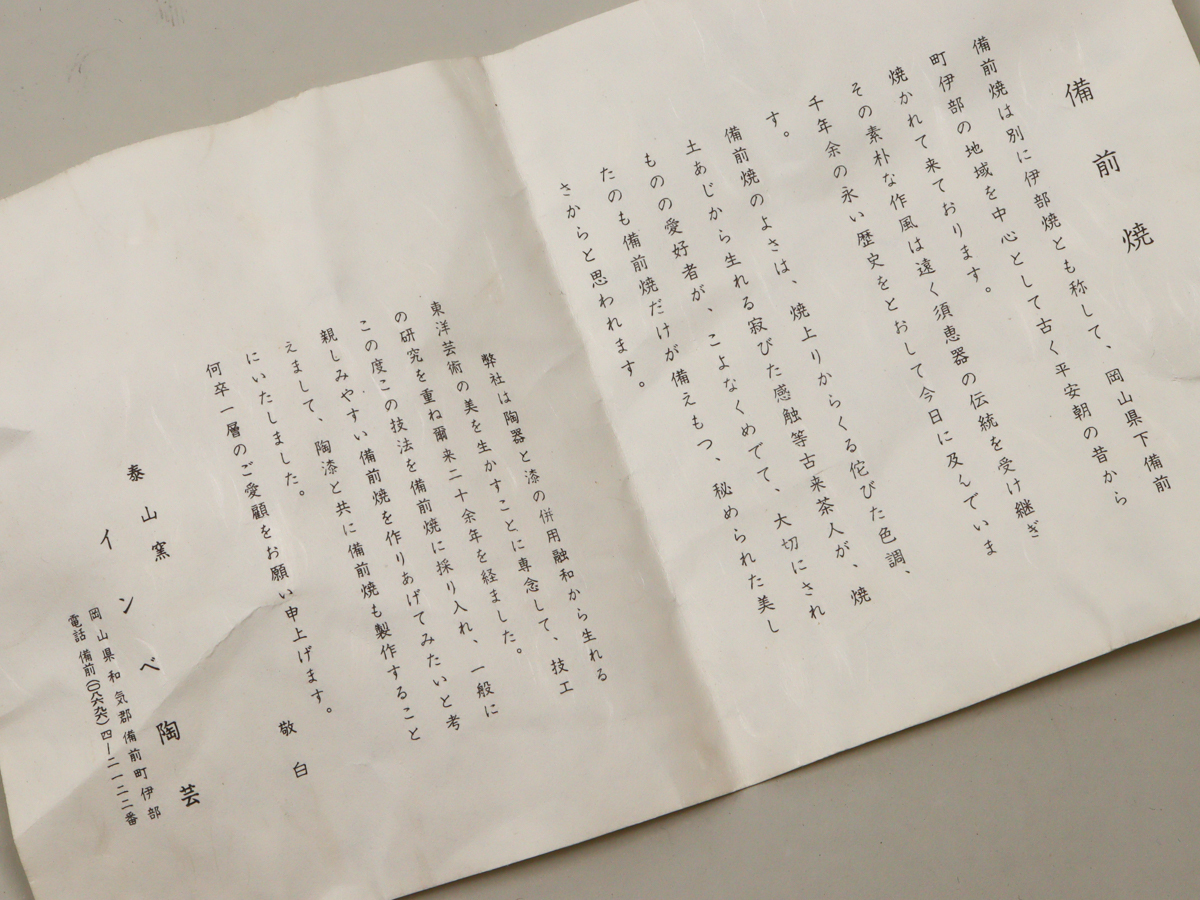 備前焼
備前焼は別に伊部焼とも称して、岡山県下備前
町伊部の地域を中心として古く平安朝の昔から
焼かれて来ております。
その素朴な作風は遠く須恵器の伝統を受け継ぎ
千年余の永い歴史をとおして今日に及んでいま
す。
備前焼のよさは、焼上りからくる侘びた色調、
土あじから生れる寂びた感触等古来茶人が、焼
ものの愛好者が、こよなくめでて、大切にされ
たのも備前焼だけが備えもつ、秘められた美し
さからと思われます。
弊社は陶器と漆の併用融和から生れる
東洋芸術の美を生かすことに専念して、技工
の研究を重ね爾来二十余年を経ました。
この度この技法を備前焼に採り入れ、一般に
親しみやすい備前焼を作りあげてみたいと考
えまして、陶漆と共に備前焼も製作すること
にいたしました。
何卒一層のご愛顧をお願い申上げます。
敬白
泰山窯
インベ陶芸
岡山県和気郡備前町伊部
電話 備前(〇八六九六)四ー二一二二番